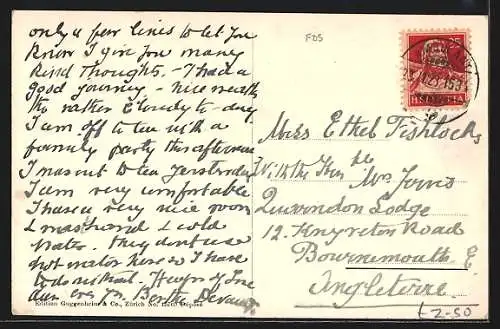 only a few lines to let you
know I give you many
kind Thoughts. - I had a
good journey - nice weather
tho rather cloudy to-day
I am off to tea with a
family party this afternoon
I was out to tea yesterday
I am very comfortable
I have a very nice room
& wash hand & cold
water. they dont use
hot water here so I have
to do without. Heaps of love
from yrs. Berthe
Edition Guggenheim & Co., Zürich No.
FDS
25
HELVETIA
Miss Ethel Fishlock
℅ the Hon ble
Mrs Jones
Lodge
12. Knyveton Road
Bournemouth E.
Angleterre.
£2-50